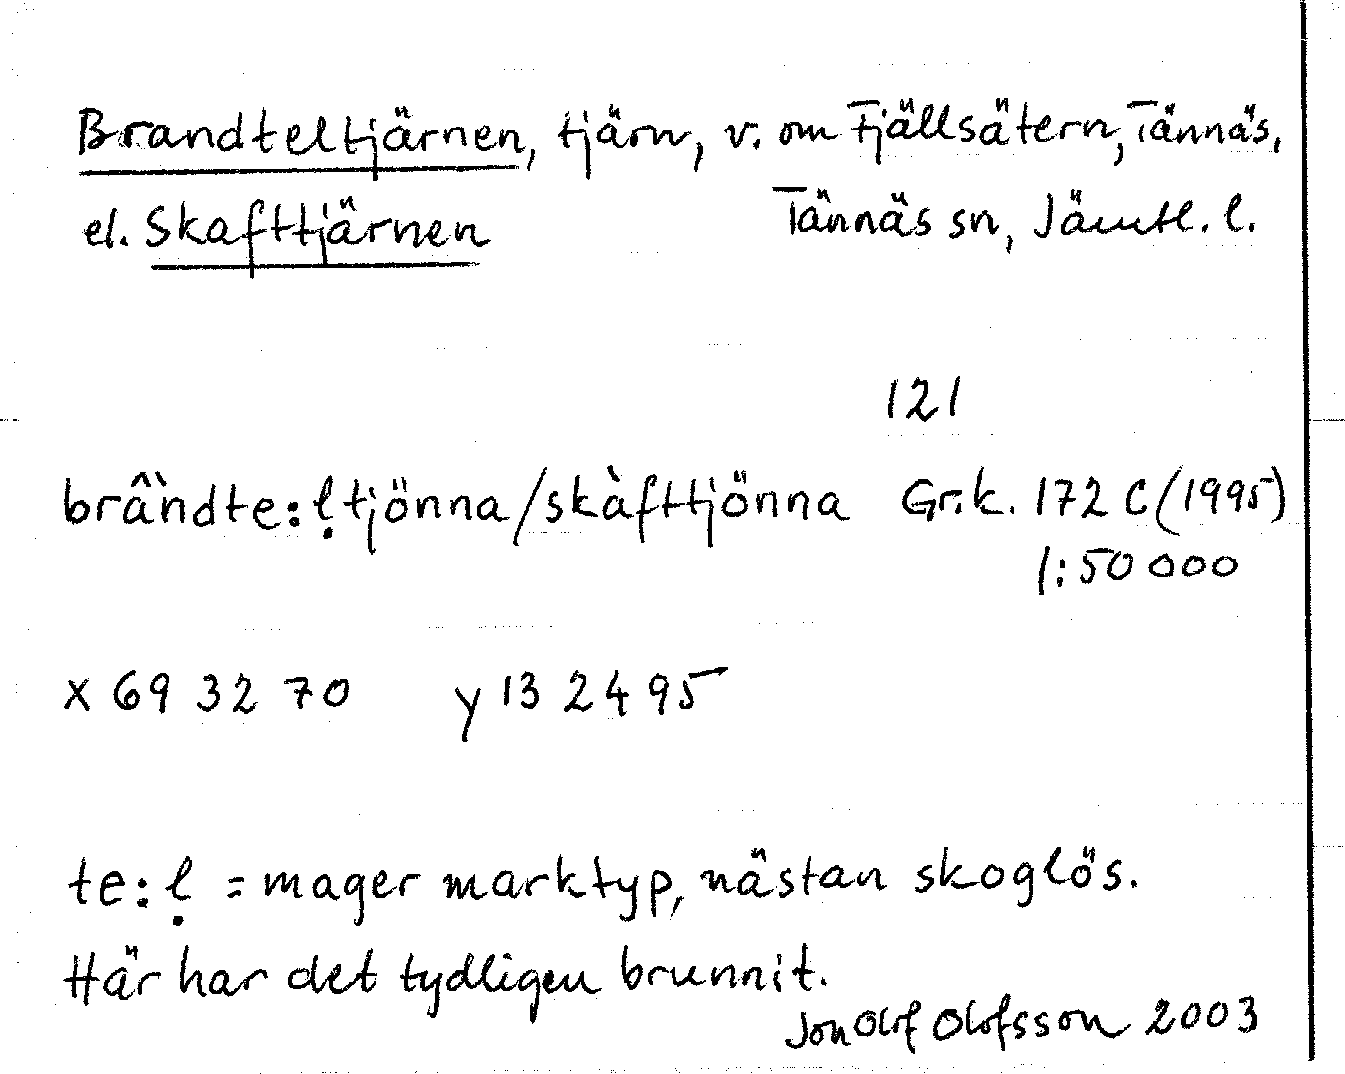 Brandteltjärnen, tjärn, v. om Fjällsätern, Tännäs,
el. Skafttjärnen Tännäs sn, Jämtl. l.
121
brânˋdte:ḷtjönna/skàfttjönna Gr.k. 172 C (1995)
1:50 000
x 69 32 70 y 13 24 95
te:ḷ = mager marktyp, nästan skoglös.
Här har det tydligen brunnit.
Jon Olof Olofsson 2003